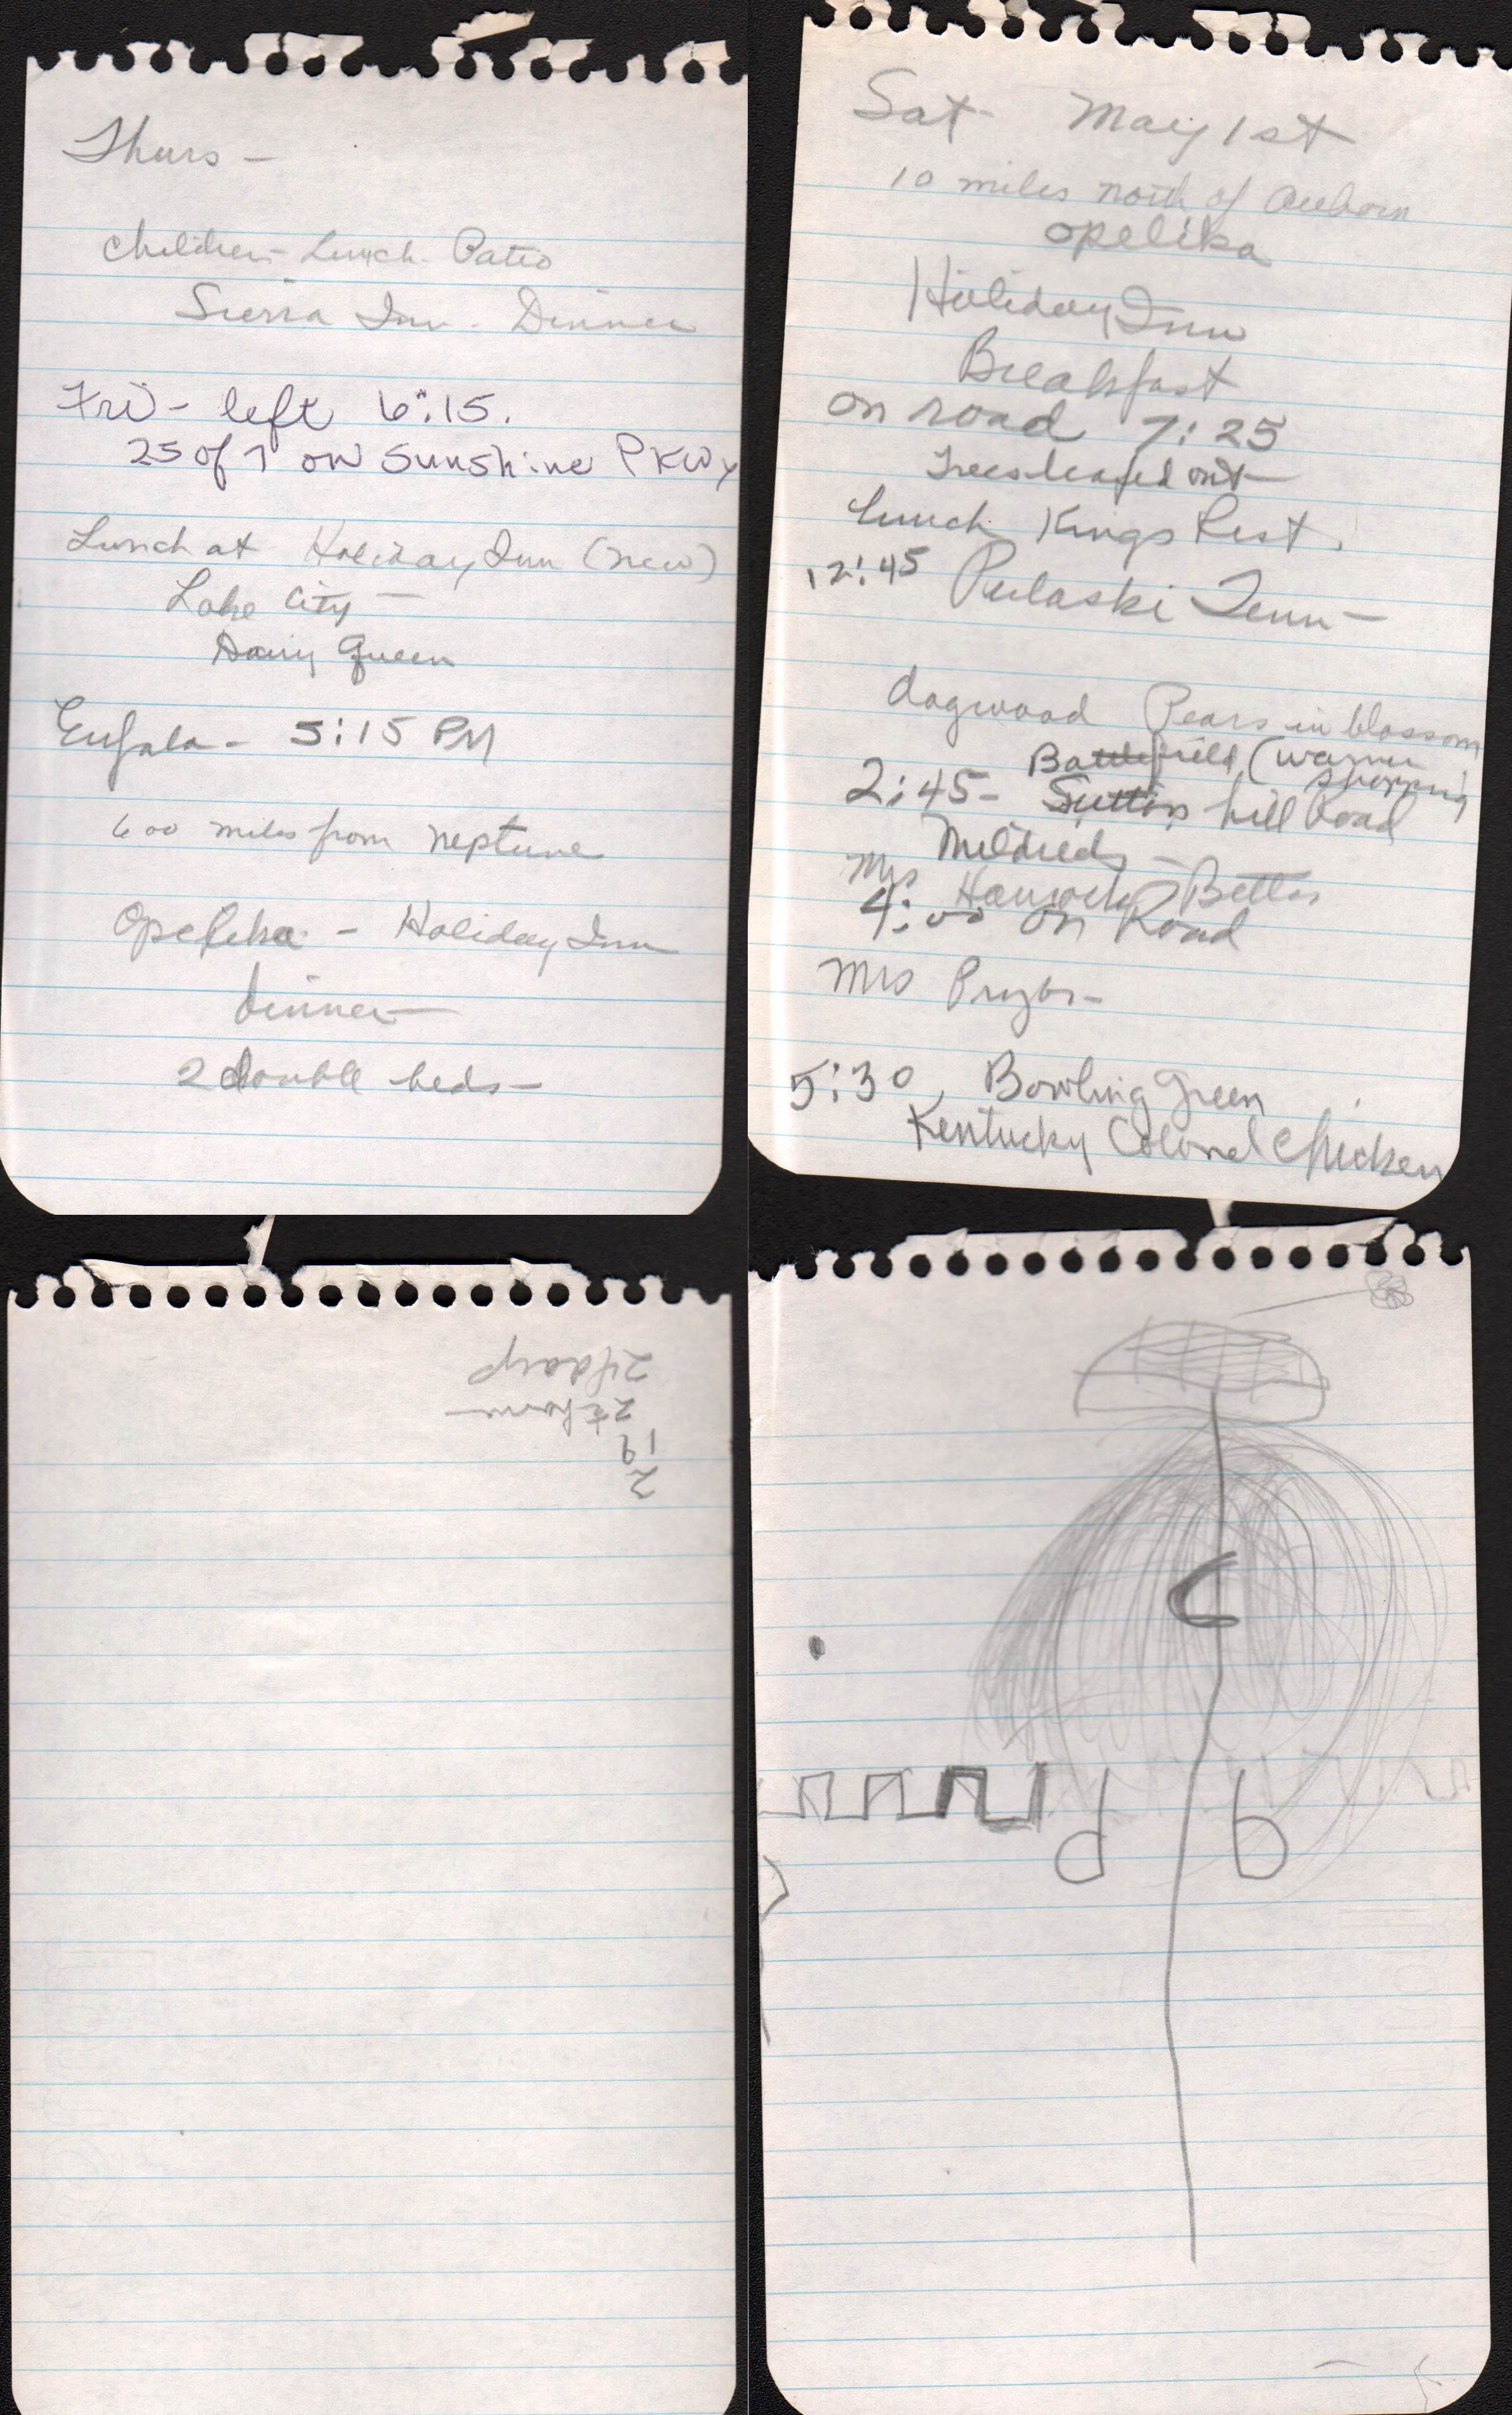 Thurs -
Children - Lunch - Patio
Sierra Inn - Dinner
Fri - left 6:15.
25 of 7 on Sunshine PKWy
Lunch at Holiday Inn (new)
Lake City -
Dairy Queen
Eufala - 5:15 PM
600 miles from Neptune
Opelika - Holiday Inn
dinner -
2 double beds -
Sat - May 1st
10 miles north of Auborn
Opelika
Holiday Inn
Breakfast
on road 7:25
Trees leafed out -
Lunch Kings Rest.
12:45 Pulaski Tenn -
dogwood Pears in blossom
Battlefield (warner
2:45 - Sutton hill Road
Mildreds -
Mrs Betters
4:00 on Road
Mrs
5:30, Bowling Green
Kentucky Colonel Chicken
2
19
24 days